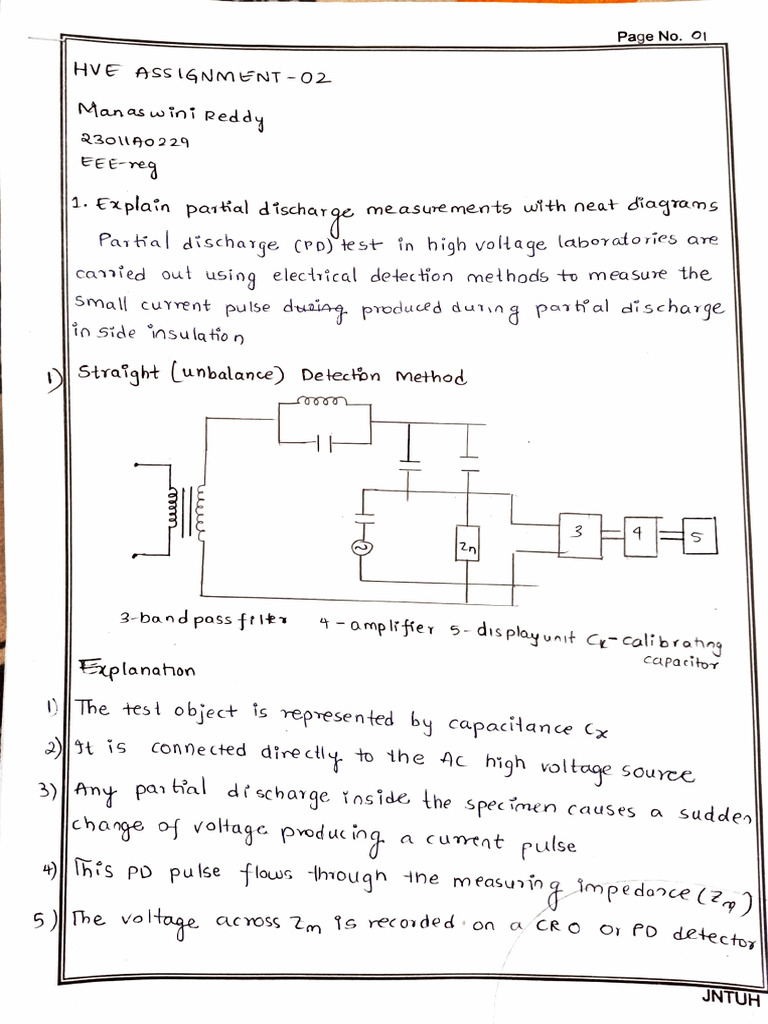 Page No. 01
HVE ASSIGNMENT-02
Manaswini Reddy
23011A0229
EEE-reg
1. Explain partial discharge measurements with neat diagrams
Partial discharge (PD) test in high voltage laboratories are
carried out using electrical detection methods to measure the
small current pulse during produced during partial discharge
in side insulation
1) Straight (unbalance) Detection Method
Zn
3
4
5
3-band pass filter 4-amplifier 5-display unit Cx-calibrating
capacitor
Explanation
1) The test object is represented by capacitance Cx
2) It is connected directly to the AC high voltage source
3) Any partial discharge inside the specimen causes a sudden
change of voltage producing a current pulse
4) This PD pulse flows through the measuring impedance (Zm)
5) The voltage across Zm is recorded on a CRO or PD detector
JNTUH